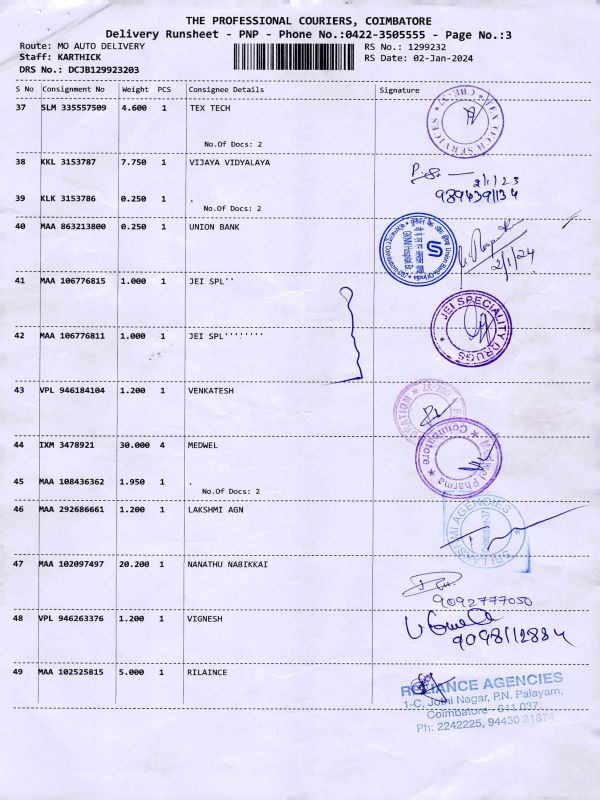 THE PROFESSIONAL COURIERS, COIMBATORE
Delivery Runsheet - PNP - Phone No.:0422-3505555 - Page No.:3
Route: MO AUTO DELIVERY RS No.: 1299232
Staff: KARTHICK RS Date: 02-Jan-2024
DRS No.: DCJB129923203
S No Consignment No Weight PCS Consignee Details Signature
37 SLM 335557509 4.600 1 TEX TECH
TEX TECH SERVICES
CBE-37
No.Of Docs: 2
38 KKL 3153787 7.750 1 VIJAYA VIDYALAYA
2/1/23
9894391134
39 KLK 3153786 0.250 1 .
No.Of Docs: 2
40 MAA 863213800 0.250 1 UNION BANK
Union Bank Of India
2/1/24
41 MAA 106776815 1.000 1 JEI SPL''
JEI SPECIALITY DRUGS
42 MAA 106776811 1.000 1 JEI SPL''''''''
43 VPL 946184104 1.200 1 VENKATESH
44 IXM 3478921 30.000 4 MEDWEL
Pharma
Coimbatore
45 MAA 108436362 1.950 1 .
No.Of Docs: 2
46 MAA 292686661 1.200 1 LAKSHMI AGN
SRI LAKSHMI AGENCIES
47 MAA 102097497 20.200 1 NANATHU NABIKKAI
9092777050
48 VPL 946263376 1.200 1 VIGNESH
9098112884
49 MAA 102525815 5.000 1 RILAINCE
RELIANCE AGENCIES
1-C, Jothi Nagar, P.N. Palayam,
Coimbatore - 641 037.
Ph: 2242225, 94430 21874